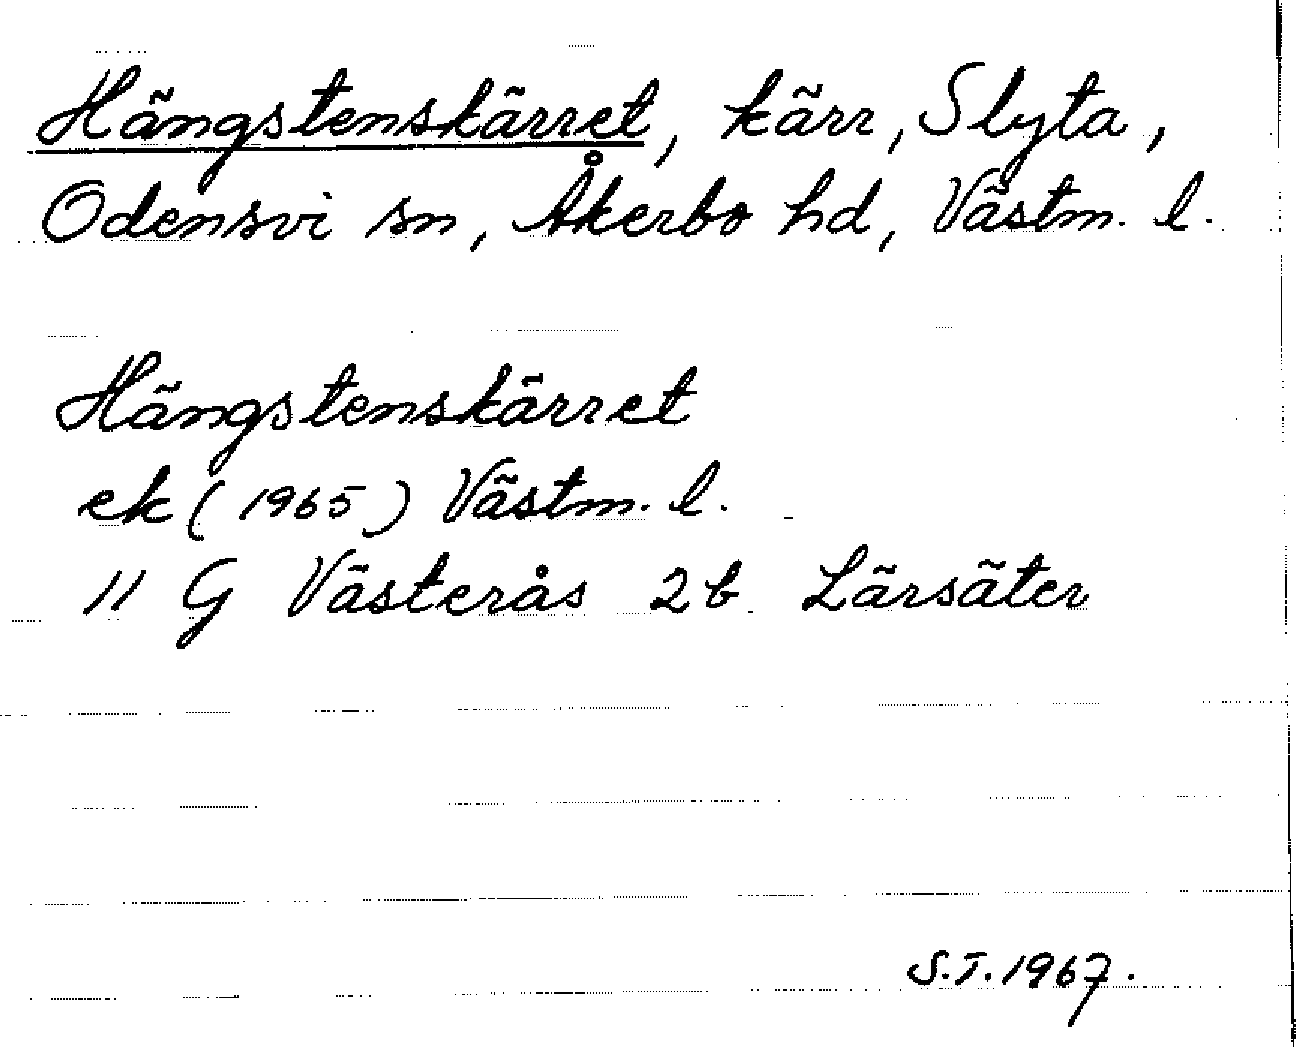 Hängstenskärret, kärr, Slyta,
Odensvi sn, Åkerbo hd, Västm. l.
Hängstenskärret
ek (1965) Västm. l.
11 G Västerås 2b Lärsäter
S.T. 1967.